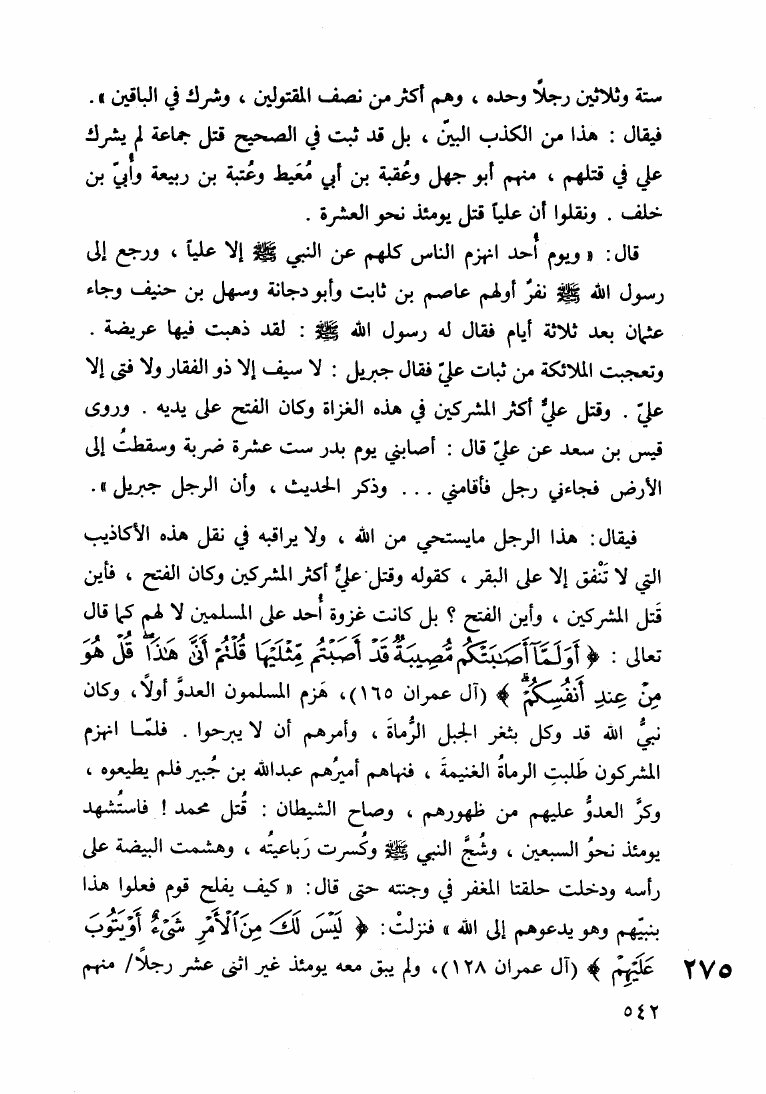 ستة وثلاثين رجلًا وحده ، وهم أكثر من نصف المقتولين ، وشرك في الباقين » .
فيقال : هذا من الكذب البيّن ، بل قد ثبت في الصحيح قتل جماعة لم يشرك
علي في قتلهم ، منهم أبو جهل وعُقبة بن أبي مُعَيط وعُتبة بن ربيعة وأُبيّ بن
خلف . ونقلوا أن علياً قتل يومئذ نحو العشرة .
قال : « ويوم أُحد انهزم الناس كلهم عن النبي ﷺ إلا علياً ، ورجع إلى
رسول الله ﷺ نفرٌ أولهم عاصم بن ثابت وأبو دجانة وسهل بن حنيف وجاء
عثمان بعد ثلاثة أيام فقال له رسول الله ﷺ : لقد ذهبت فيها عريضة .
وتعجبت الملائكة من ثبات عليّ فقال جبريل : لا سيف إلا ذو الفقار ولا فتى إلا
عليّ . وقتل عليٌّ أكثر المشركين في هذه الغزاة وكان الفتح على يديه . وروى
قيس بن سعد عن عليّ قال : أصابني يوم بدر ست عشرة ضربة وسقطتُ إلى
الأرض فجاءني رجل فأقامني ... وذكر الحديث ، وأن الرجل جبريل » .
فيقال : هذا الرجل مايستحي من الله ، ولا يراقبه في نقل هذه الأكاذيب
التي لا تَنْفق إلا على البقر ، كقوله وقتل عليٌّ أكثر المشركين وكان الفتح ، فأين
قَتل المشركين ، وأين الفتح ؟ بل كانت غزوة أُحد على المسلمين لا لهم كما قال
تعالى : ﴿ أَوَلَمَّآ أَصَٰبَتۡكُم مُّصِيبَةٞ قَدۡ أَصَبۡتُم مِّثۡلَيۡهَا قُلۡتُمۡ أَنَّىٰ هَٰذَاۖ قُلۡ هُوَ
مِنۡ عِندِ أَنفُسِكُمۡۗ ﴾ (آل عمران ١٦٥)، هَزم المسلمون العدوَّ أولًا، وكان
نبيُّ الله قد وكل بثغر الجبل الرُّماةَ ، وأمرهم أن لا يبرحوا . فلمّا انهزم
المشركون طَلبتِ الرماةُ الغنيمةَ ، فنهاهم أميرُهم عبدالله بن جُبير فلم يطيعوه ،
وكرَّ العدوُّ عليهم من ظهورهم ، وصاح الشيطان : قُتل محمد ! فاستُشهد
يومئذ نحوُ السبعين ، وشُجَّ النبي ﷺ وكُسرت رَباعيتُه ، وهشمت البيضة على
رأسه ودخلت حلقتا المغفر في وجنته حتى قال : « كيف يفلح قوم فعلوا هذا
بنبيّهم وهو يدعوهم إلى الله » فنزلتْ : ﴿ لَيۡسَ لَكَ مِنَ ٱلۡأَمۡرِ شَيۡءٌ أَوۡ يَتُوبَ
عَلَيۡهِمۡ ﴾ (آل عمران ١٢٨)، ولم يبق معه يومئذ غير اثنى عشر رجلًا/ منهم
٢٧٥
٥٤٢